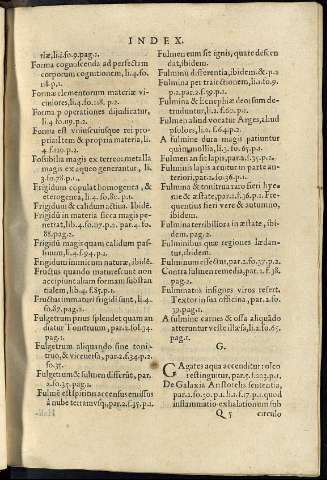 INDEX.
riæ, li.4. fo. 9. pag. 2.
Forma cognoscenda ad perfectam
corporum cognitionem, li. 4. fo.
118. p. 1.
Formæ elementorum materiæ vi-
ciniores, li. 4. fo. 118. p. 2.
Forma p operationes dijudicatur,
li. 4. fo. 119. p. 2.
Forma est vniuscuiusque rei pro-
pria: item & propria materia, li.
4. fo. 120. p. 1.
Fossibilia magis ex terreo: metalla
magis ex aqueo generantur, li.
Frigidum copulat homogenea, &
eterogenea, li. 4. fo. 80. p. 1.
Frigidum & calidum actiua. Ibidē.
Frigidū in materia sicca magis pe-
netrat, lib. 4. fo. 97. p. 2. par. 4. fo.
88. pag. 2.
Frigidū magis quam calidum pas-
siuum, li. 4. f. 94. p. 2.
Frigidum inimicum naturæ, ibidē.
Fructus quando maturescunt non
accipiunt aliam formam substan
tialem, li. 4. f. 85. p. 1.
Fructus immaturi frigidi sunt, li. 4.
fo. 87. pag. 2.
Fulgetrum prius splendet quam au
diatur Tonitruum, par. 2. fol. 34.
pag. 1.
Fulgetrum aliquando sine tonit-
truo, & viceversa, par. 2. f. 34. p. 2.
fo. 35.
Fulgetrum & fulmen differūt, par.
2. fo. 35. pag. 2.
Fulmē est spiritus accensus emissus
à nube terramvsq;, par. 2. f. 35. p.
Fulmen cum sit ignis, quare descen
dat, ibidem.
Fulminū differentia, ibidem. & p. 2
Fulmina per traiectionem, li. 2. fo. 9.
p. 2. par. 2. f. 39. p. 1.
Fulmina & Ecnephiæ deorsum de-
truduntur, li. 2. f. 60. p. 1.
Fulmen aliud vocatur Arges, aliud
psoloes, li. 2. f. 64. p. 2.
A fulmine dura magis patiuntur
quàm mollia, li. 2. fo. 65. p. 1.
Fulmen an sit lapis, par. 2. f. 35. p. 2.
Fulminis lapis acuitur in parte an-
teriori, par. 2. fo. 36. p. 1.
Fulmina & tonitrua raro fieri hye-
me & æstate, par. 2. f. 36. p. 1. Fre-
quentius fieri vere & autumno,
ibidem.
Fulmina terribiliora in æstate, ibi-
dem. pag. 2.
Fulminibus quæ regiones lædan-
tur, ibidem.
Fulminum effectus, par. 2. fo. 37. p. 2.
Contra fulmen remedia, par. 2. f. 38.
pag. 2.
Fulminatos insignes viros refert
Textor in sua officina, par. 2. fo.
39. pag. 1.
A fulmine carnes & ossa aliquādo
atteruntur veste illæsa, li. 2. fo. 65.
pag. 1.
G.
GAgates aqua accenditur: oleo
restinguitur,
De Galaxia Aristotelis sententia,
par. 2. fo. 30. p. 1. li. 1. f. 17. p. 1. quod
inflammatio exhalationum sub
Q 5 circulo